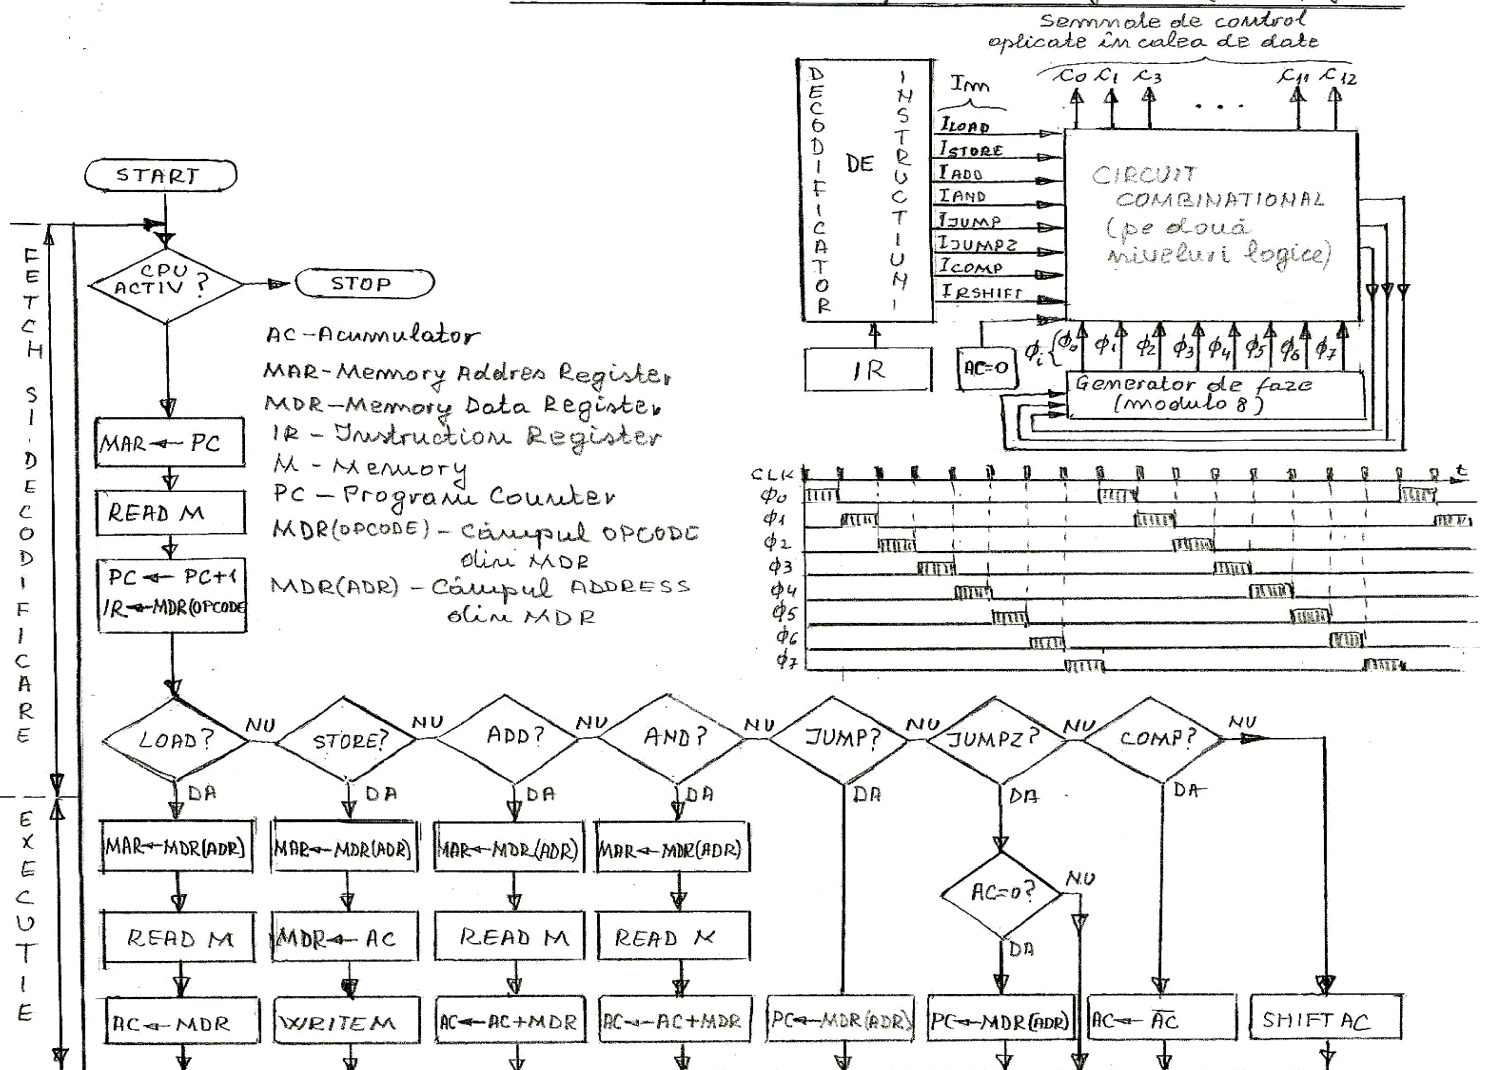 Semnale de control
aplicate în calea de date
C0 C1 C3 ... C11 C12
DECODIFICATOR
DE
INSTRUCTIUNI
Im
ILOAD
ISTORE
IADD
IAND
IJUMP
IJUMPZ
ICOMP
IRSHIFT
CIRCUIT
COMBINATIONAL
(pe două
niveluri logice)
IR
AC=0
ϕi { ϕ0 ϕ1 ϕ2 ϕ3 ϕ4 ϕ5 ϕ6 ϕ7
Generator de faze
(modulo 8)
CLK t
ϕ0
ϕ1
ϕ2
ϕ3
ϕ4
ϕ5
ϕ6
ϕ7
START
CPU
ACTIV ?
STOP
FETCH SI DECODIFICARE
AC-Acumulator
MAR-Memory Addres Register
MDR-Memory Data Register
IR - Instruction Register
M - Memory
PC - Program Counter
MDR(OPCODE) - Câmpul OPCODE
din MDR
MDR(ADR) - Câmpul ADDRESS
din MDR
MAR ← PC
READ M
PC ← PC+1
IR←MDR(OPCODE
LOAD? NU STORE? NU ADD? NU AND? NU JUMP? NU JUMPZ? NU COMP? NU
DA DA DA DA DA DA DA
EXECUTIE
MAR←MDR(ADR) MAR←MDR(ADR) MAR←MDR(ADR) MAR←MDR(ADR)
AC=0? NU
DA
READ M MDR← AC READ M READ M
AC←MDR WRITE M AC←AC+MDR AC←AC+MDR PC←MDR(ADR) PC←MDR(ADR) AC← A̅C̅ SHIFT AC